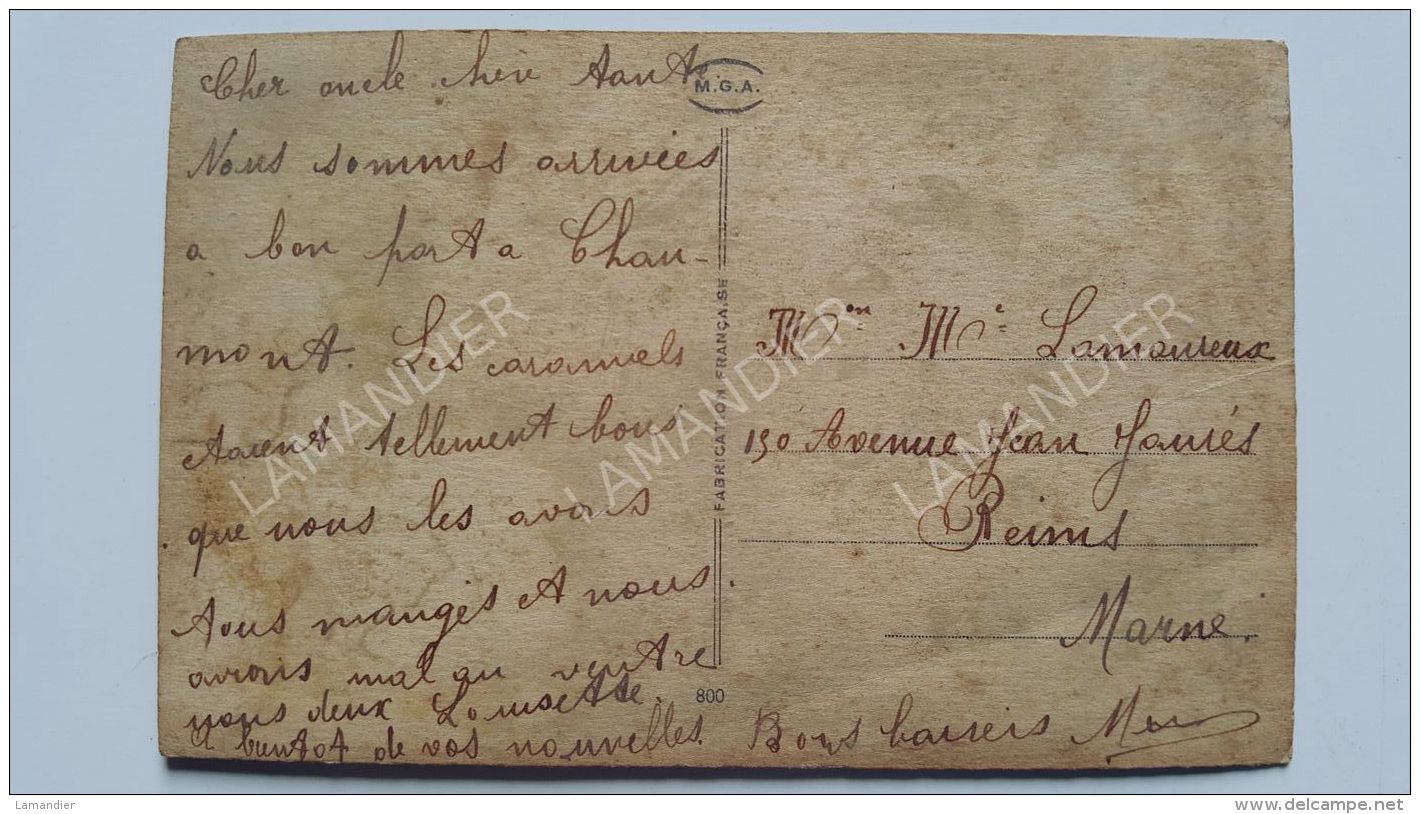 Cher oncle chère tante.
Nous sommes arrivées
a bon port a Chau-
mont. Les caramels
étaient tellement bons
que nous les avons
tous mangés et nous
avons mal au ventre
nous deux Lousette.
A bientot de vos nouvelles. Bons baisers
M.G.A.
FABRICATION FRANÇAISE
800
Mon Me Lamoureux
130 Avenue Jean Jaurés
Reims
Marne.
LAMANDIER
LAMANDIER
LAMANDIER
Lamandier
http://www.delcampe.net